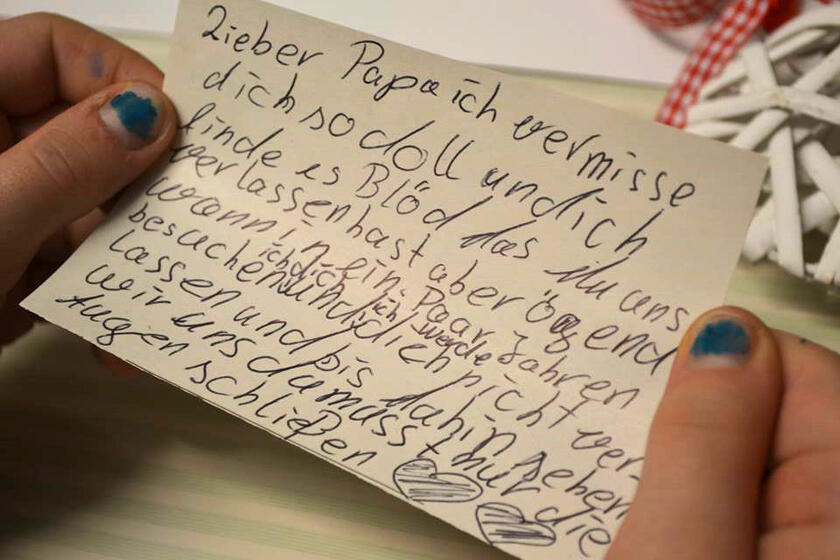 Lieber Papa ich vermisse
dich so doll und ich
finde es Blöd das du uns
verlassen hast aber ögend
wann in ein Paar Jahren
ich dich ich werde
besuchen und dich nicht ver-
lassen und bis dahin sehen
wir uns da musst nur die
Augen schließen